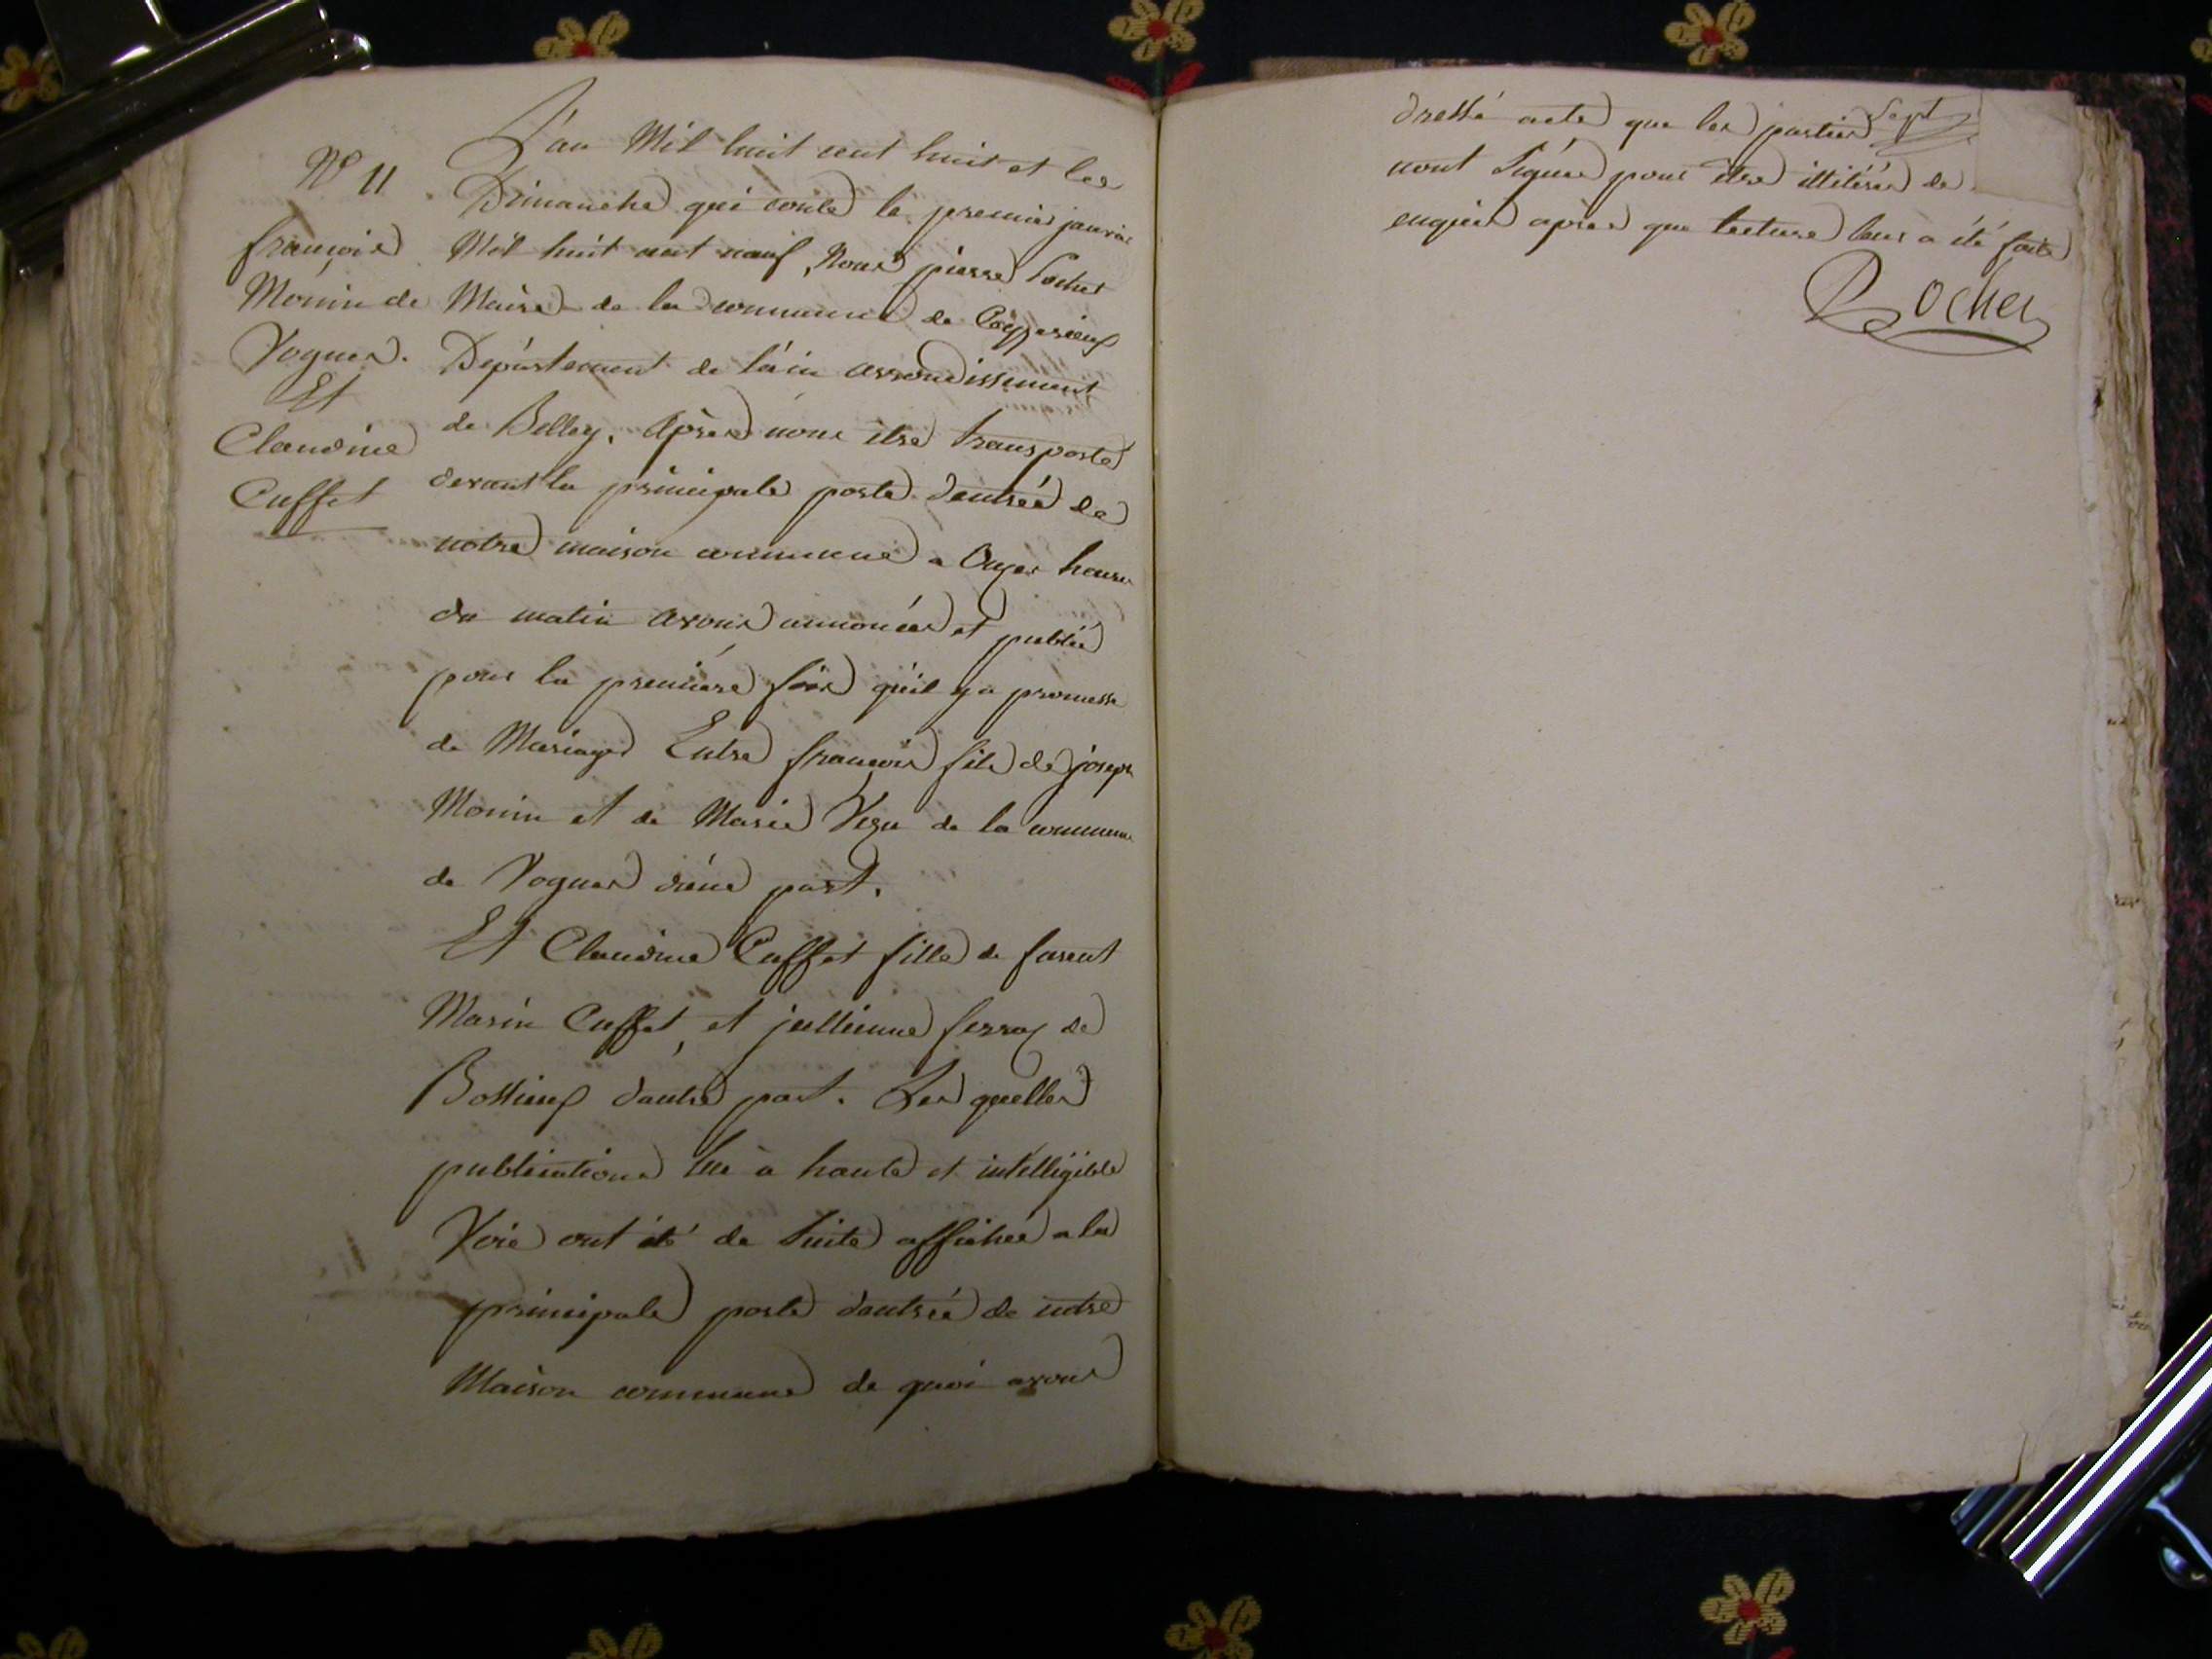 N° 11
françois
Monin de
Vognes.
Et
Claudine
Cuffet
L'an Mil huit cent huit et les
Dimanche qui conte le premier janvier
Mil huit cent neuf, Nous pierre Rochet
Maire de la commune de Ceyzerieux
Département de l'ain arrondissement
de Belley, Après nous être transporté
devant la principale porte d'entrée de
notre maison commune a Onze heures
du matin avons annoncée et publié
pour la première fois qu'il y a promesse
de Mariage Entre françois fils de joseph
Monin et de Marie Vezu de la commune
de Vognes d'une part.
Et Claudine Cuffet fille de
Marin Cuffet, et jullienne ferraz de
d'autre part. Les quelles
publications lue à haute et intelligible
Voie ont été de Suite affichée a la
principale porte d'entrée de notre
Maison commune de quoi avons
Sept
dressé acte que les parties
nont Signée pour être illitérés de
enquis après que lecture leur a été faite
Rochet